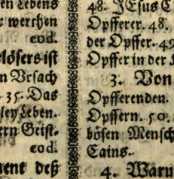 en Lebens
werden
eod.
lösers ist
n Ursach
35. Das
sley Leben.
rrn Geist.
eod.
ment deß
48. JEsus C
Opfferer. 48.
der Opffer. 49
Opffer in der
3. Von
Opfferenden.
Opffern. 50.
bösen Mensch
Cains.
4. Waru